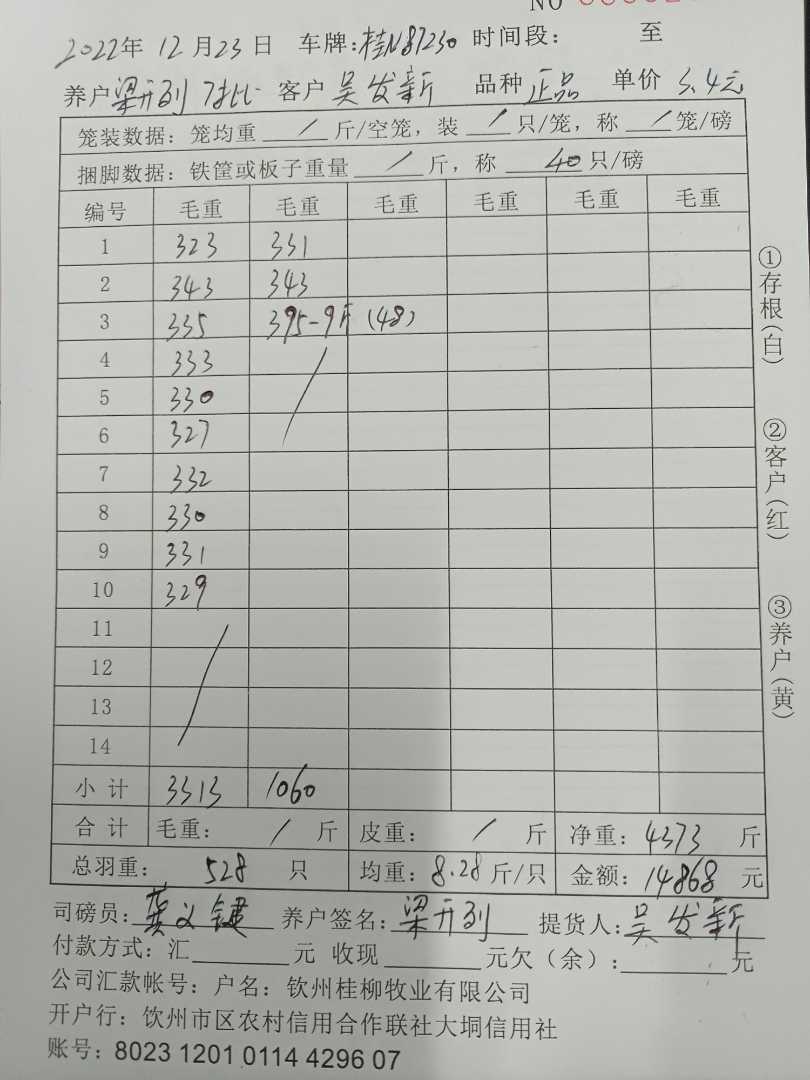 NO
2022年 12月23日 车牌:桂N87230 时间段: 至
养户梁开列 7批 客户吴发新 品种正品 单价5.4元
笼装数据: 笼均重 / 斤/空笼, 装 / 只/笼, 称 / 笼/磅
捆脚数据: 铁筐或板子重量 / 斤, 称 40 只/磅
编号 毛重 毛重 毛重 毛重 毛重 毛重
1 323 331
2 343 343
3 335 395-9斤 (48)
4 333
5 330
6 327
7 332
8 330
9 331
10 329
11
12
13
14
小计 3313 1060
合计 毛重: / 斤 皮重: / 斤 净重: 4373 斤
总羽重: 528 只 均重: 8.28 斤/只 金额: 14868 元
司磅员: 义键 养户签名: 梁开列 提货人: 吴发新
付款方式: 汇 元 收现 元欠(余): 元
公司汇款帐号: 户名: 钦州桂柳牧业有限公司
开户行: 钦州市区农村信用合作联社大垌信用社
账号: 8023 1201 0114 4296 07
①存根(白)
②客户(红)
③养户(黄)